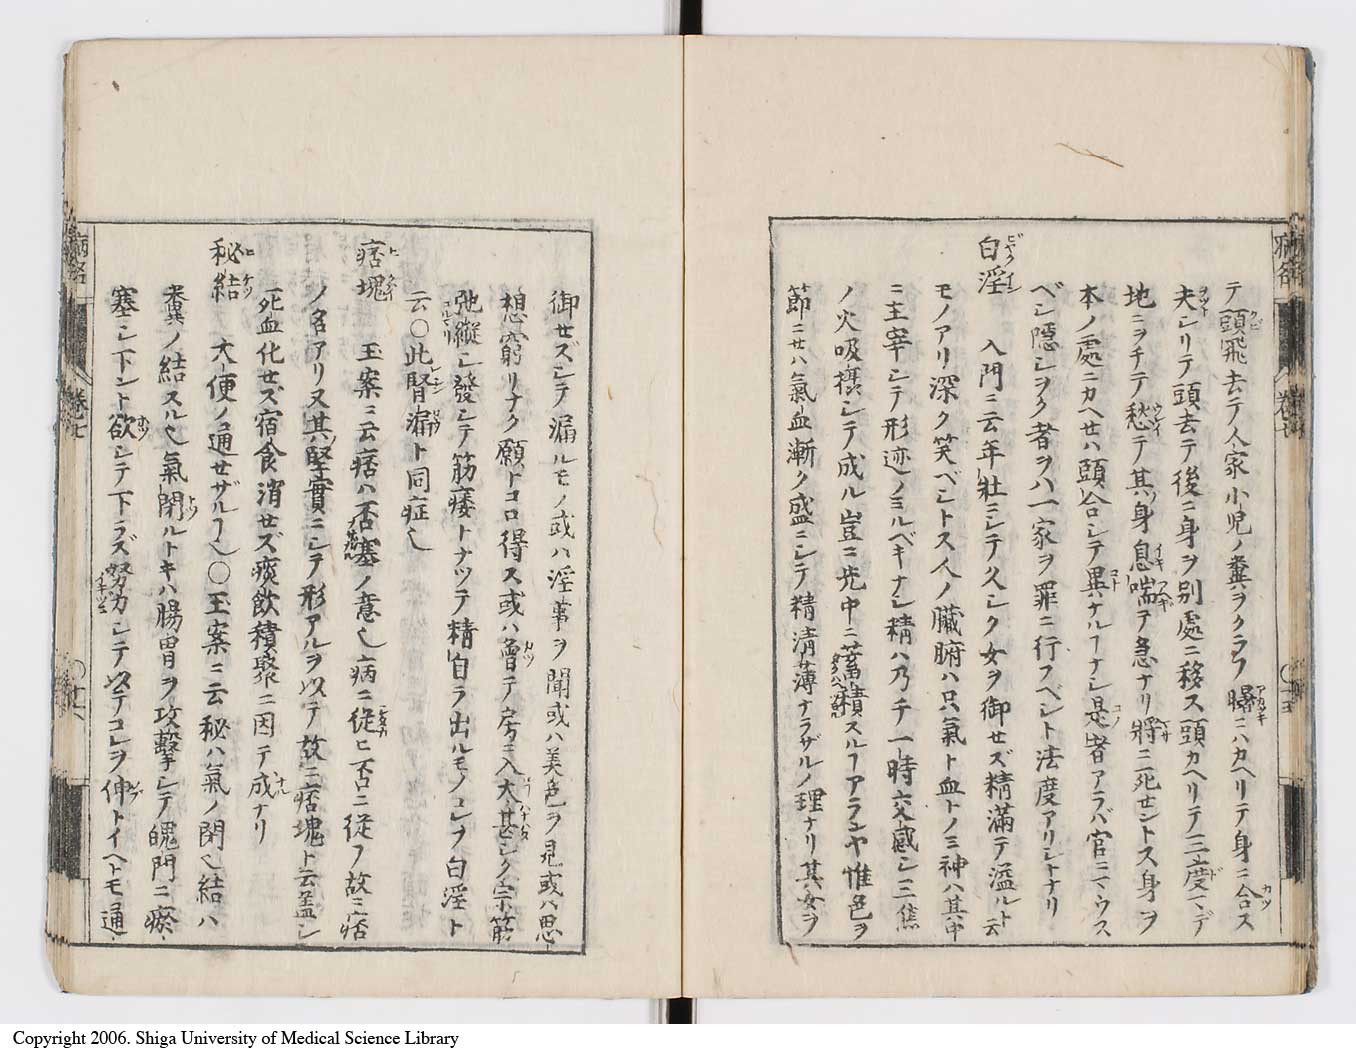 テ頭飛去テ人家小児ノ糞ヲクラフ曝ニハカヘリテ身ニ合ス
夫シリテ頭去テ後ニ身ヲ別處ニ移ス頭カヘリテ三度マデ
地ニヲチテ愁テ其身息喘テ急ナリ將ニ死セントス身ヲ
本ノ處ニカヘセハ頭合シテ異ナルヿナシ是者アラバ官ニマウス
ベシ隠シヲク者ヲハ一家ヲ罪ニ行フヘシト法度アリシトナリ
白淫 入門ニ云年壯ニシテ久シク女ヲ御セズ精滿テ溢ルト云
モノアリ深ク笑ベシトス人ノ臓腑ハ只氣ト血トノミ神ハ其中
ニ主宰シテ形迹ノミルベキナシ精ハ乃チ一時交感シ三焦
ノ火吸襮シテ成ル豈ニ先中ニ蓄積スルヿアランヤ惟色ヲ
節ニセハ氣血漸ク盛ニシテ精淸薄ナラザルノ理ナリ其女ヲ
御セズシテ漏ルモノ或ハ淫事ヲ聞或ハ美色ヲ見或ハ思
想窮リナク願トコロ得ス或ハ曾テ房ニ入大甚シク宗筋
弛縱シ發シテ筋痿トナツテ精自ラ出ルモノコレヲ白淫ト
云〇此腎漏ト同症也
痞塊 玉案ニ云痞ハ否塞ノ意也病ニ従ヒ否ニ従フ故ニ痞
ノ名アリ又其堅實ニシテ形アルヲ以テ故ニ痞塊ト云盖シ
死血化セズ宿食消セズ痰飲積聚ニ因テ成ナリ
秘結 大便ノ通セザルヿ也〇玉案ニ云秘ハ氣ノ閉也結ハ
糞ノ結スル也氣閉ルトキハ腸胃ヲ攻撃シテ魄門ニ瘀
塞シ下ント欲シテ下ラズ努力シテ以テコレヲ伸トイヘトモ通
病名
巻七
Copyright 2006. Shiga University of Medical Science Library